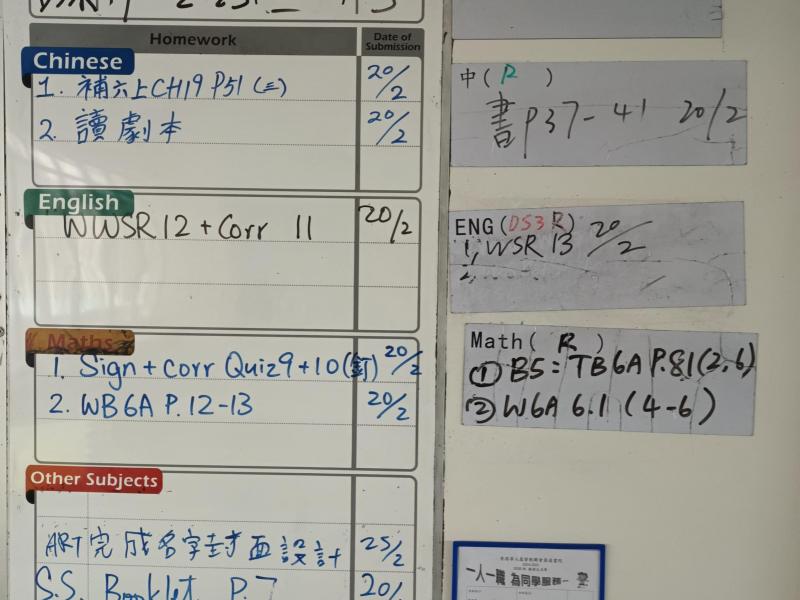 Homework
Date of Submission
Chinese
1. 補六上CH19 P51 (三) 20/2
2. 讀劇本 20/2
English
WWSR12 + Corr 11 20/2
Maths
1. Sign + corr Quiz 9 + 10 (釘) 20/2
2. WB 6A P. 12-13 20/2
Other Subjects
ART 完成名字封面設計 25/2
S.S. Booklet P.7 20/
中( R )
書 P37-41 20/2
ENG(DS3 R)
1, WSR 13 20/2
2,
Math( R )
① B5: TB6A P.81(2,6)
② W6A 6.1 (4-6)
一人一職 為同學服務